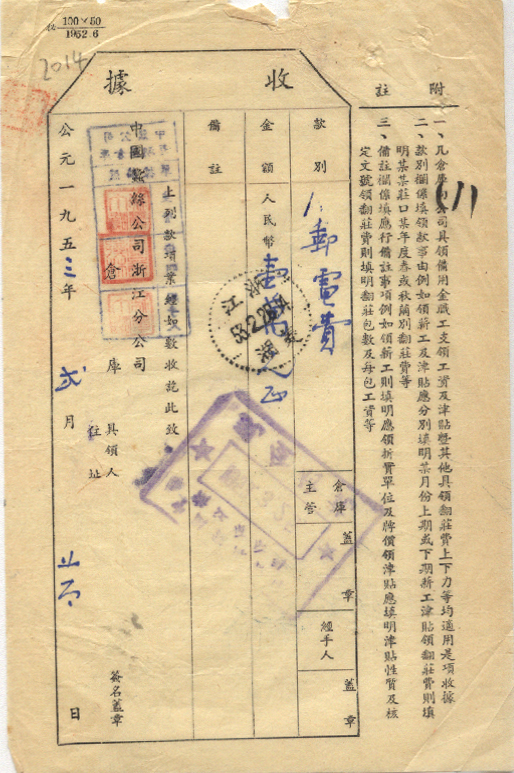 100×50
1952.6
2014
附註
一、凡倉庫向公司具領備用金職工支領工資及津貼暨其他具領翻莊費上下力等均適用是項收據
二、款別欄係填領款事由例如領薪工及津貼應分別填明某月份上期或下期薪工津貼領翻莊費則填
明某某莊口某年度春或秋繭別翻莊費等
三、備註欄係填應行備註事項例如領薪工則填明應領折實單位及牌價領津貼應填明津貼性質及核
定文號領翻莊費則填明翻莊包數及每包工資等
收據
款別
1. 郵電費
倉庫
主管
蓋章
經手人
蓋章
金額
人民幣
浙江
53.2.2
備註
上列款項業經如數收訖此致
中國蠶絲公司浙江分公司
倉庫
具領人
住址
簽名蓋章
公元一九五三年 弍月 日